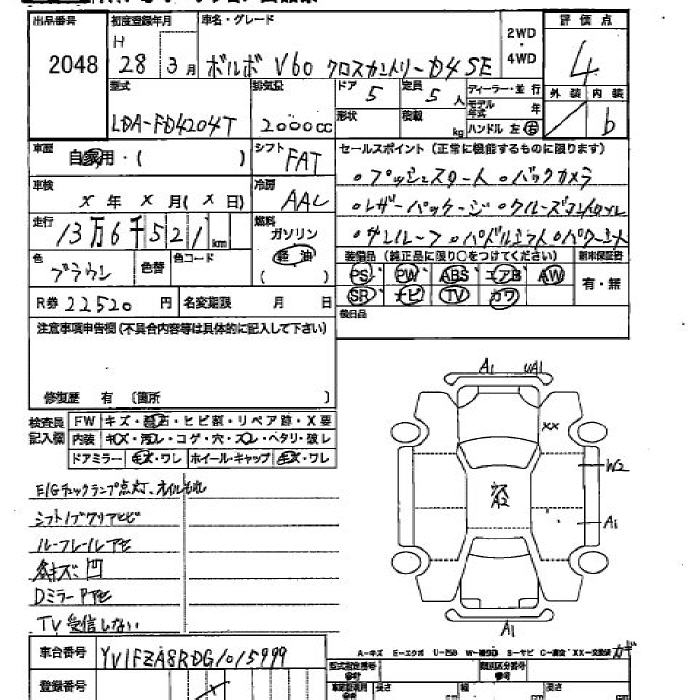 出品番号 初度登録年月 車名・グレード 2WD・4WD 評価点
2048 H 28 3月 ボルボ V60 クロスカントリーD4SE 4
型式 排気量 ドア 定員 ディーラー・並行 外装 内装
LDA-FD4204T 2000cc 5 5人 モデル年式 年 b
形状 積載 kg ハンドル 左 右
車歴 自家用・( ) シフト FAT セールスポイント(正常に機能するものに限ります)
車検 × 年 × 月(× 日) 冷房 AAC
。プッシュスタート 。バックカメラ
。レザーパッケージ 。クルーズコントロール
。サンルーフ 。パドルシフト 。パワーシート
走行 13万6千521km 燃料 ガソリン 軽油 ( )
色 ブラウン 色替 色コード
装備品(純正品に限り○をつけてください) 新車保証書
PS PW ABS エアB AW 有・無
SR ナビ TV カワ
R券 22520円 名変期限 月 日
後日品
注意事項申告欄(不具合内容等は具体的に記入して下さい)
修復歴 有 (箇所 )
検査員記入欄 FW キズ・飛石・ヒビ割・リペア跡・X要
内装 キズ・汚レ・コゲ・穴・スレ・ヘタリ・破レ
ドアミラー キズ・ワレ ホイール・キャップ キズ・ワレ
E/Gチェックランプ点灯、オイルもれ
シフトノブクリアヒビ
ルーフレールサビ
TV受信しない
A1 UA1
XX
W2
A2
A1
A1
A-キズ E-エクボ
車台番号 YV1FZA8RDG1015999
登録番号
型式指定番号 類別区分番号
長さ 幅 高さ